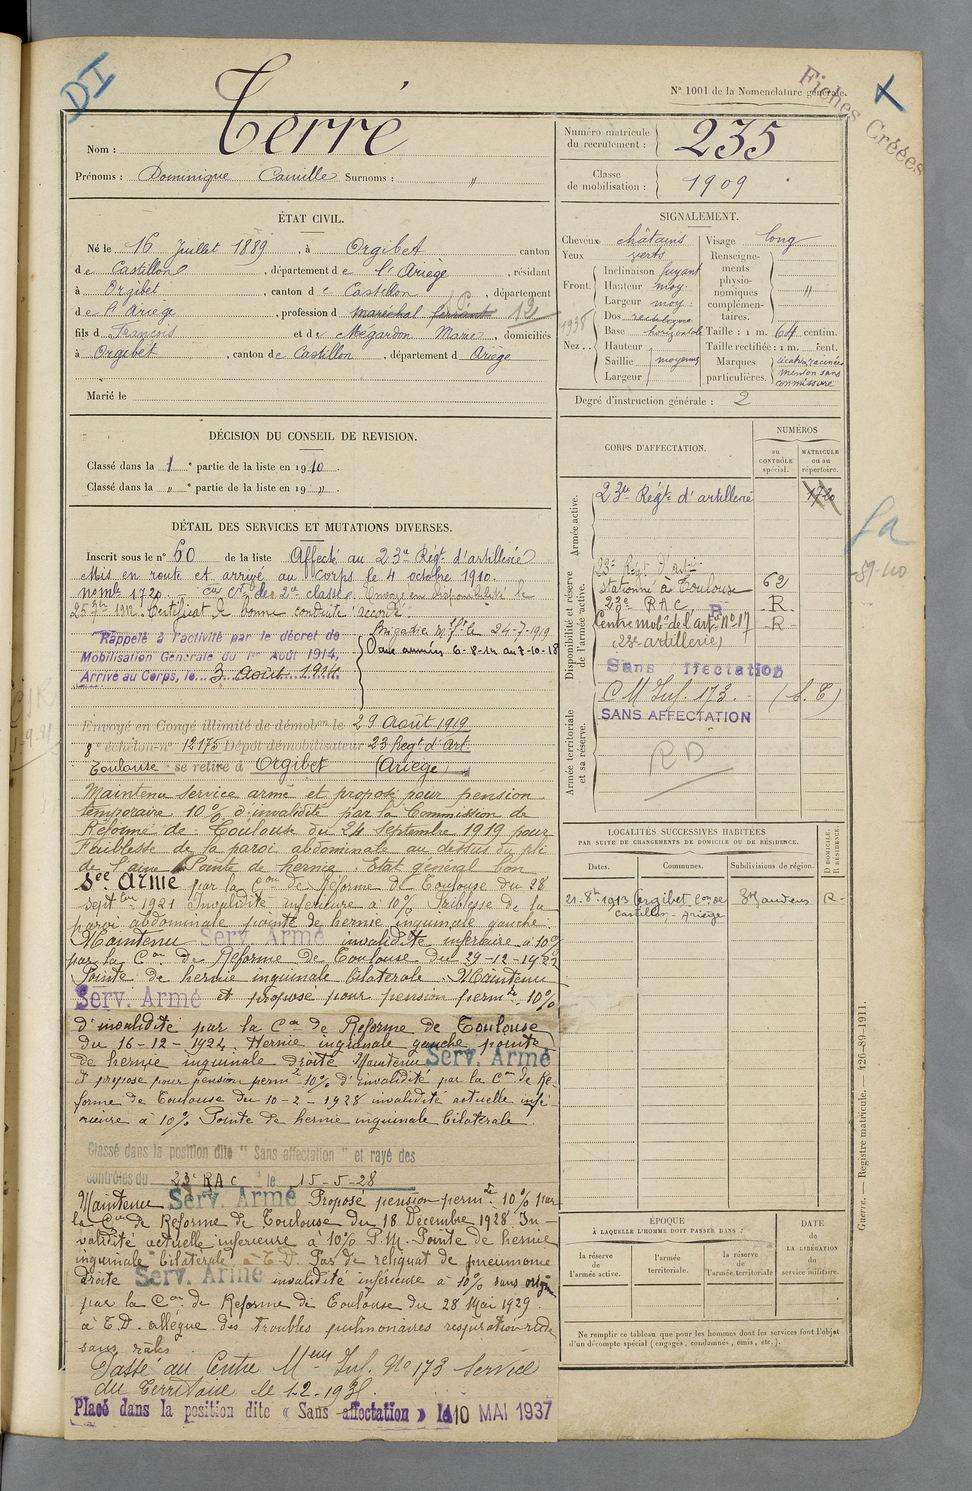 DI
N° 1001 de la Nomenclature générale.
Fiches Créées
Nom : Terré
Prénoms : Dominique Camille Surnoms : "
Numéro matricule du recrutement : 235
Classe de mobilisation : 1909
ÉTAT CIVIL.
Né le 16 Juillet 1889, à Orgibet canton
de Castillon, département de l'Ariège, résidant
à Orgibet, canton de Castillon, département
de l'Ariège, profession de maréchal ferrant
fils de François et de Mégardon Marie, domiciliés
à Orgibet, canton de Castillon, département d Ariège
Marié le
SIGNALEMENT.
Cheveux châtains
Yeux verts
Front. Inclinaison fuyant
Hauteur moy.
Largeur moy.
Nez.. Dos rectiligne
Base horizontale
Hauteur
Saillie moyenne
Largeur
Visage long
Renseignements physionomiques complémentaires. "
Taille : 1 m. 64 centim.
Taille rectifiée : 1 m. cent.
Marques particulières.
Degré d'instruction générale : 2
DÉCISION DU CONSEIL DE REVISION.
Classé dans la 1e partie de la liste en 1910.
Classé dans la " e partie de la liste en 19 ".
DÉTAIL DES SERVICES ET MUTATIONS DIVERSES.
Inscrit sous le n° 60 de la liste Affecté au 23e Régt d'artillerie
Mis en route et arrivé au Corps le 4 octobre 1910.
Nomle 1720. Cer de 2e classe. Envoyé en disponibilité le
25 7bre 1912. Certificat de bonne conduite accordé.
Rappelé à l'activité par le décret de
Mobilisation Générale du 1er Août 1914,
Arrivé au Corps, le 3 Août 1914.
Brigadier le 24-7-1919
Aux armées 6-8-14 au 7-10-18
Envoyé en Congé illimité de démobon le 29 Août 1919
8e échelon n° 12175 Dépôt démobilisateur 23 Regt d'Art.
Toulouse se retire à Orgibet (Ariège)
Maintenu Service armé et proposé pour pension
temporaire 10% d'invalidité par la Commission de
Réforme de Toulouse du 24 Septembre 1919 pour
Faiblesse de la paroi abdominale au dessus du pli
de l'aine Pointe de hernie. Etat général bon.
Sce Armé par la Con de Réforme de Toulouse du 28
Septbre 1921 Invalidité inférieure à 10% Faiblesse de la
paroi abdominale pointe de hernie inguinale gauche.
Maintenu Serv. Armé invalidité inférieure à 10%
par la Con de Réforme de Toulouse du 29-12-1922
Pointe de hernie inguinale bilatérale. Maintenu
Serv. Armé et proposé pour pension permte 10%
d'invalidité par la Con de Réforme de Toulouse
du 16-12-1924. Hernie inguinale gauche pointe
de hernie inguinale droite Maintenu Serv. Armé
et proposé pour pension permte 10% d'invalidité par la Con de Re-
forme de Toulouse du 10-2-1928 invalidité actuelle infé-
rieure à 10% Pointe de hernie inguinale bilatérale.
Classé dans la position dite " Sans affectation " et rayé des
contrôles du 23e RAC le 15-5-28
Maintenu Serv. Armé Proposé pension permte 10% par
la Con de Réforme de Toulouse du 18 Décembre 1928. In-
validité actuelle inférieure à 10% P.M. Pointe de hernie
inguinale bilatérale à T.D. Pas de reliquat de pneumonie
droite Serv. Armé invalidité inférieure à 10% sans origine
par la Con de Réforme de Toulouse du 28 Mai 1929.
à T.D. allègue des troubles pulmonaires respiration rude
sans râles
Passé au Centre Meur Inf. No 173 Service
du Territoire le 1-2-193
Placé dans la position dite « Sans affectation » le 10 MAI 1937
CORPS D'AFFECTATION.
NUMÉROS
au CONTRÔLE spécial.
MATRICULE ou au répertoire.
Armée active.
23e Régt d'artillerie 1720
Disponibilité et réserve de l'armée active.
23e Régt d'Artie
Stationné à Toulouse 62
23e RAC -R-
Centre mobre de l'arte n°17 -R-
(23e artillerie)
Sans ffectation
Armée territoriale et sa réserve.
C M Inf. 173. (S.T)
SANS AFFECTATION
RD
LOCALITÉS SUCCESSIVES HABITÉES
PAR SUITE DE CHANGEMENTS DE DOMICILE OU DE RÉSIDENCE.
Dates. Communes. Subdivisions de région. D DOMICILE. R RÉSIDENCE.
21. 8bre 1913 Orgibet con de St Gaudens R-
Castillon - Ariège
ÉPOQUE
À LAQUELLE L'HOMME DOIT PASSER DANS :
la réserve de l'armée active.
l'armée territoriale.
la réserve de l'armée territoriale
DATE de LA LIBÉRATION du service militaire.
Ne remplir ce tableau que pour les hommes dont les services font l'objet
d'un décompte spécial (engagés, condamnés, omis, etc.).
Guerre. — Registre matricule. — 426-89-1911.